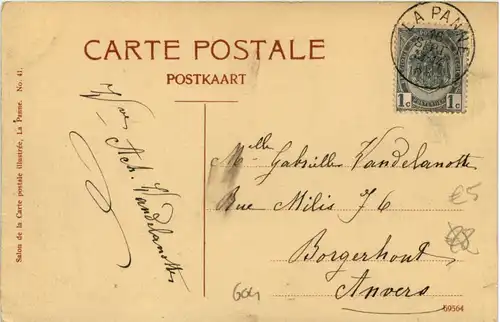 CARTE POSTALE
POSTKAART
LA PANNE
1c 1c
Salon de la Carte postale illustrée, La Panne. No. 41.
Ach. Vandelanotte
Melle Gabrielle Vandelanotte
Rue Milis 76
Borgerhout
Anvers
£5
604
69564